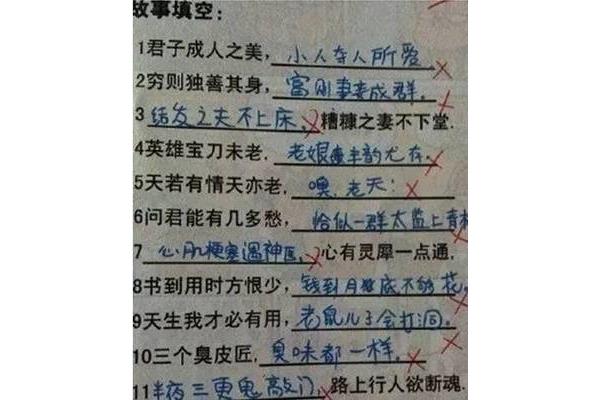 故事填空:
1君子成人之美,小人夺人所爱。
2穷则独善其身,富则妻妾成群。
3 结发之夫不上床,糟糠之妻不下堂.
4英雄宝刀未老,老娘丰韵尤存。
5天若有情天亦老,噢,老天!
6问君能有几多愁,恰似一群太监上青
7 心肌梗塞遇神医,心有灵犀一点通,
8书到用时方恨少,钱到月底不够花。
9天生我才必有用,老鼠儿子会打洞。
10三个臭皮匠,臭味都一样。
11半夜三更鬼敲门,路上行人欲断魂.